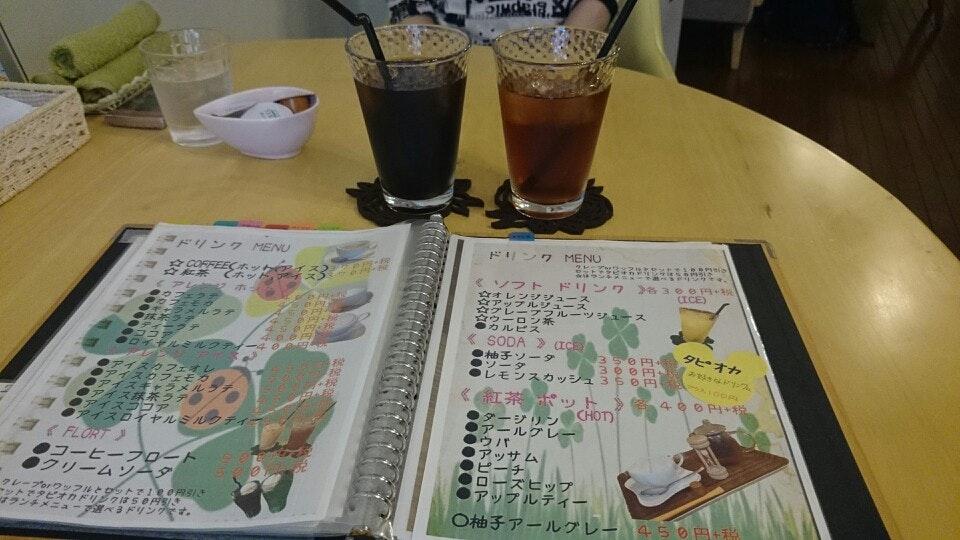 graphic
ドリンク MENU
☆ COFFEE(ホット/アイス)
☆ 紅茶 (ホット/アイス)
アレンジ ホ
ロイヤルミルクティー 400円+税
アレンジ アイス
●アイスカフェオレ
●アイスキャラメルラテ
●アイス抹茶ラテ
●アイスココア
●アイスロイヤルミルクティー
《 FLORT 》
●コーヒーフロート
●クリームソーダ
クレープorワッフルとセットで100円引き
セットでタピオカドリンクは50円引き
はランチメニューで選べるドリンクです。
ドリンク MENU
クレープorワッフルとセットで100円引き
セットでタピオカドリンクは50円引き
☆はランチメニューで選べるドリンクです。
《 ソフト ドリンク 》各300円+税
(ICE)
☆オレンジジュース
☆アップルジュース
☆グレープフルーツジュース
☆ウーロン茶
●カルピス
《 SODA 》(ICE)
●柚子ソータ 350円+税
●ソータ 300円+税
●レモンスカッシュ 350円+税
タピオカ
お好きなドリンクに
100円
《 紅茶 ポット 》各 400円+税
(HOT)
●ダージリン
●アールグレー
●ウバ
●アッサム
●ピーチ
●ローズヒップ
●アップルティー
○柚子アールグレー 450円+税